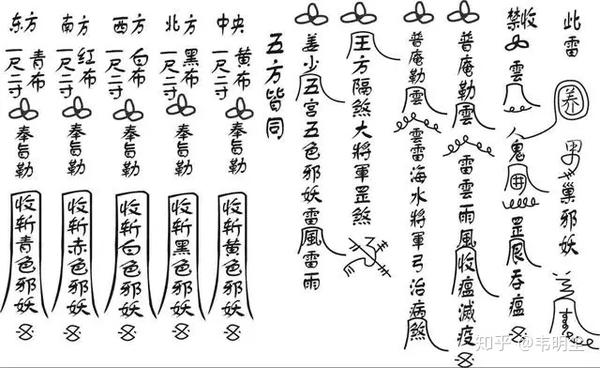 此雷
养
巢邪妖
禁收
雲
人鬼
罡
吞瘟
普庵勒雲
雷雲雨風收瘟滅疫
普庵勒雲
雲雷海水將軍弓治病煞
王方隔煞大將軍罡煞
姜少五宫五色邪妖雷風雷雨
五方皆同
中央
黄布
一尺二寸
奉旨勒
收斩黄色邪妖
北方
黑布
一尺二寸
奉旨勒
收斩黑色邪妖
西方
白布
一尺二寸
奉旨勒
收斩白色邪妖
南方
红布
一尺二寸
奉旨勒
收斩赤色邪妖
东方
青布
一尺二寸
奉旨勒
收斩青色邪妖
知乎 @韦明